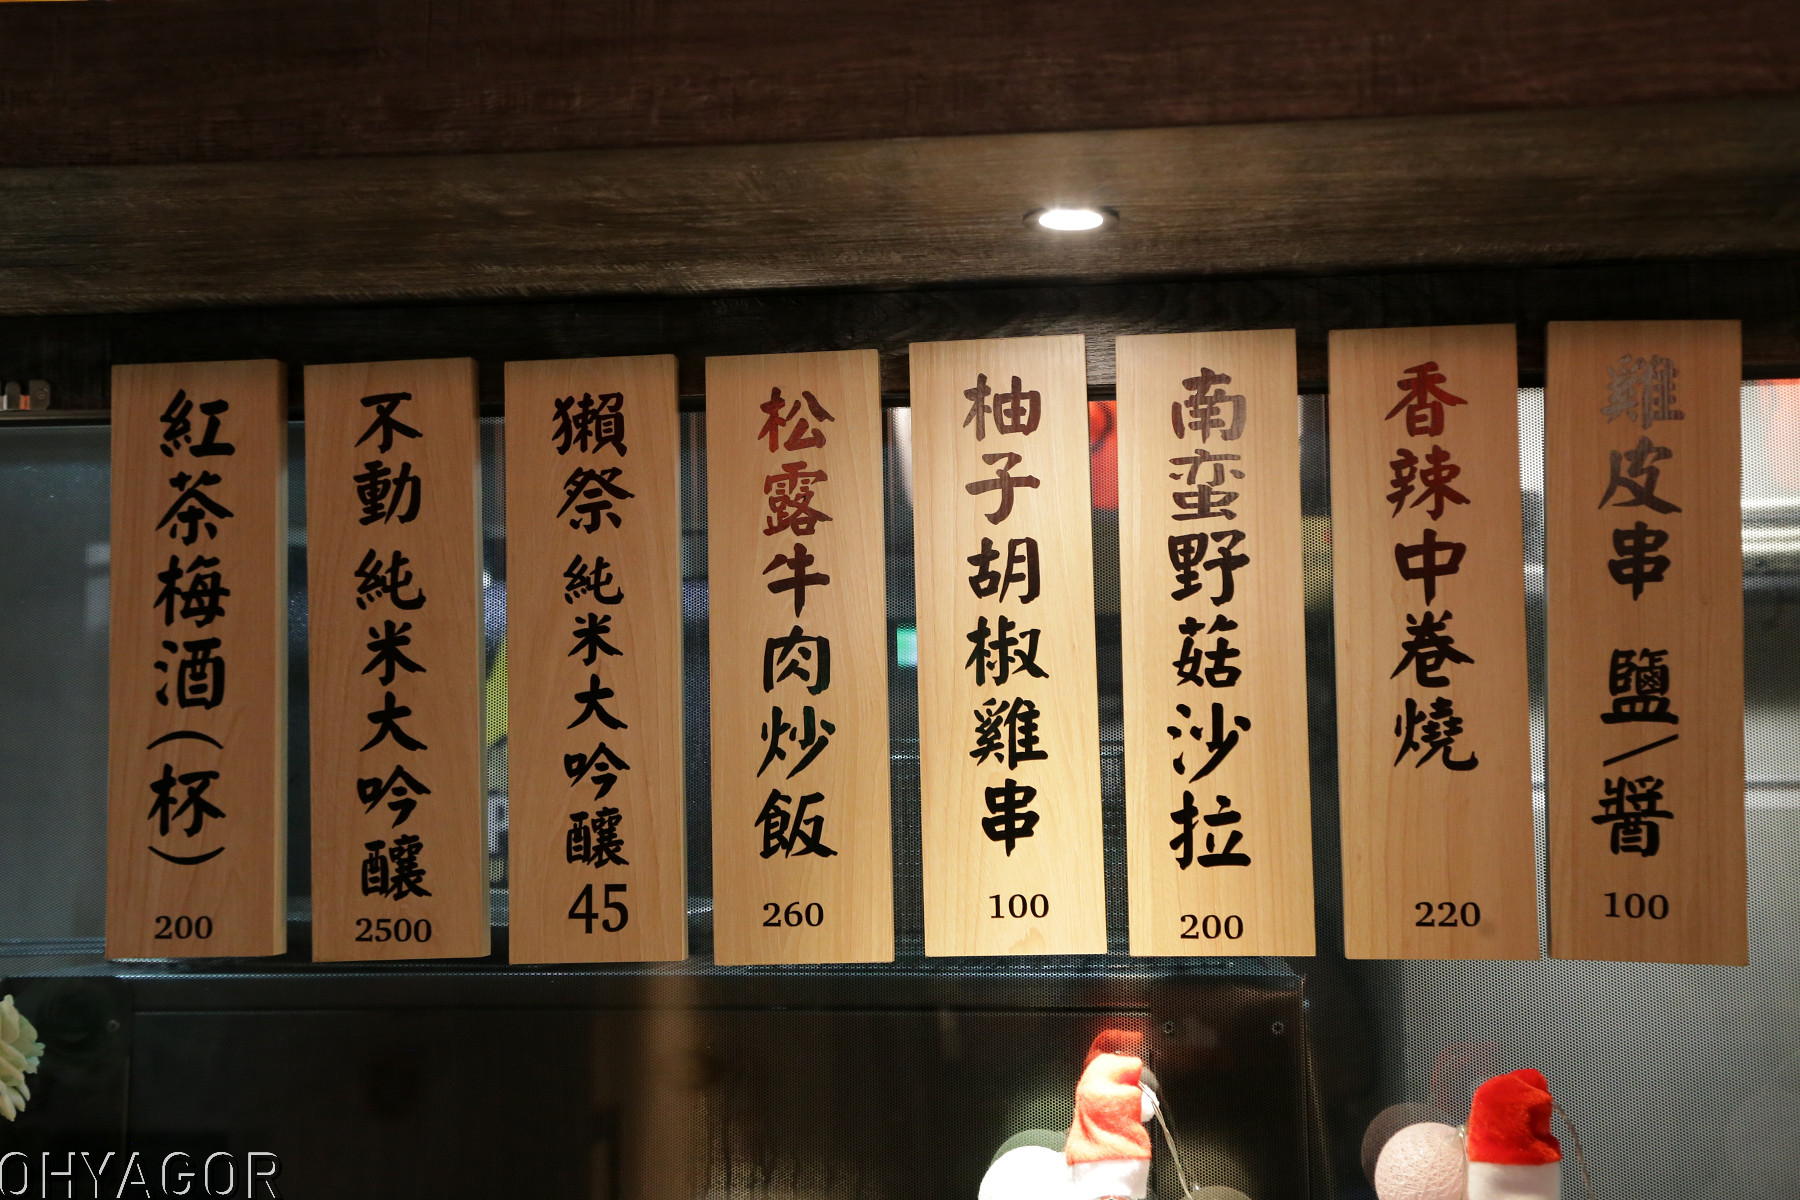 紅茶梅酒(杯)
200
不動 純米大吟釀
2500
獺祭 純米大吟釀
45
松露牛肉炒飯
260
柚子胡椒雞串
100
南蛮野菇沙拉
200
香辣中卷燒
220
雞皮串 鹽/醬
100
OHYAGOR